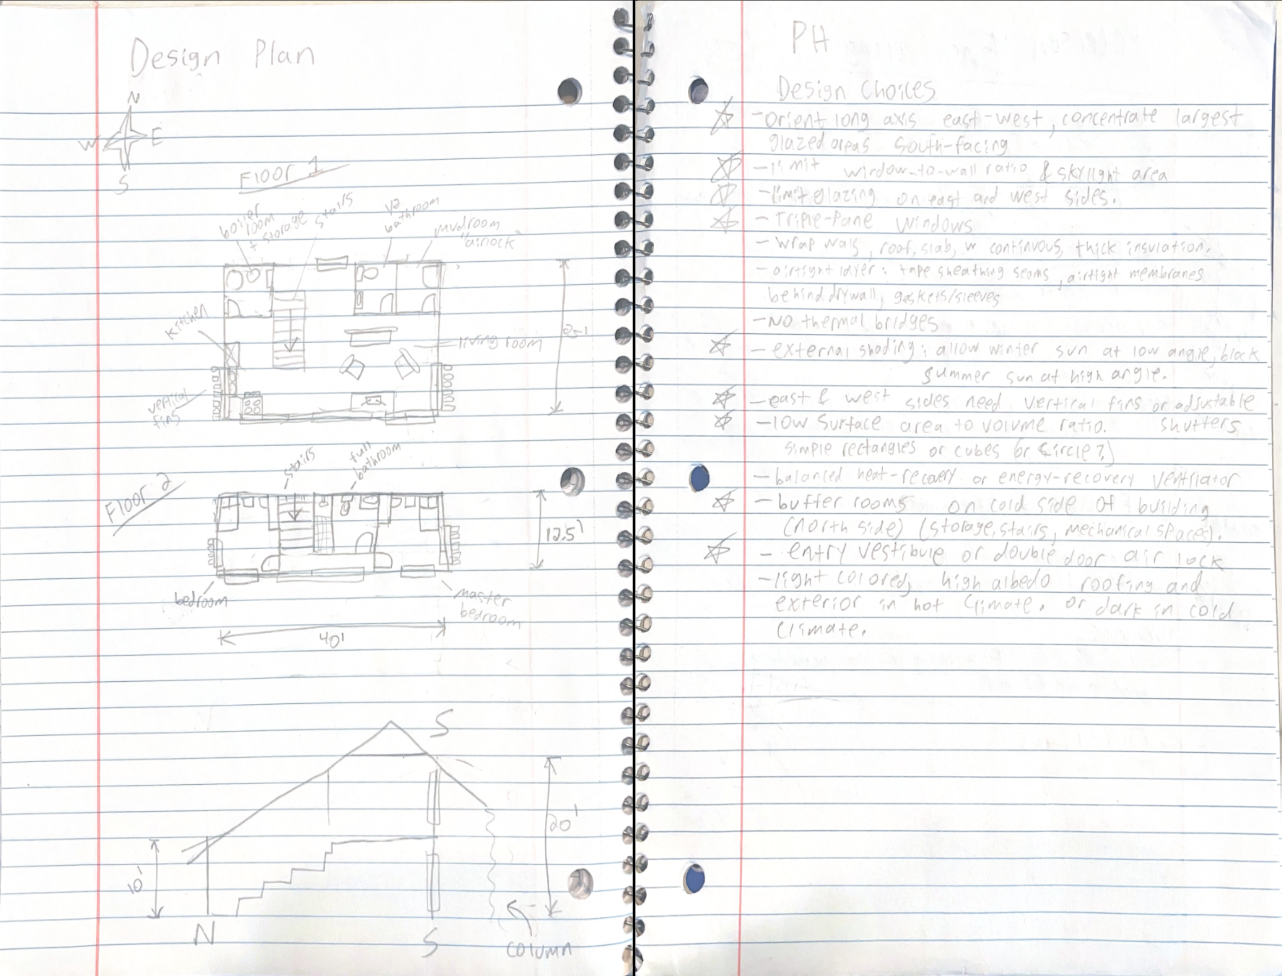 Design Plan
N
W E
S
Floor 1
boiler
room
+ storage
stairs
1/2
bathroom
mudroom
"airlock"
kitchen
living room
25'
vertical
fins
Floor 2
stairs
full
bathroom
12.5'
bedroom
master
bedroom
40'
S
20'
10'
N
S
column
PH
Design Choices
- orient long axis east-west, concentrate largest
glazed areas south-facing
- limit window-to-wall ratio & skylight area
- limit glazing on east and west sides.
- Triple-Pane windows
- wrap walls, roof, slab, w continuous, thick insulation.
- airtight layer: tape sheathing seams, airtight membranes
behind drywall, gaskets/sleeves
- NO thermal bridges
- external shading: allow winter sun at low angle, block
summer sun at high angle.
- east & west sides need vertical fins or adjustable
shutters
- low surface area to volume ratio.
simple rectangles or cubes (or circle?)
- balanced heat-recovery or energy-recovery ventilator
- buffer rooms on cold side of building
(north side) (storage, stairs, mechanical spaces).
- entry vestibule or double door air lock
- light colored, high albedo roofing and
exterior in hot climate. or dark in cold
climate.